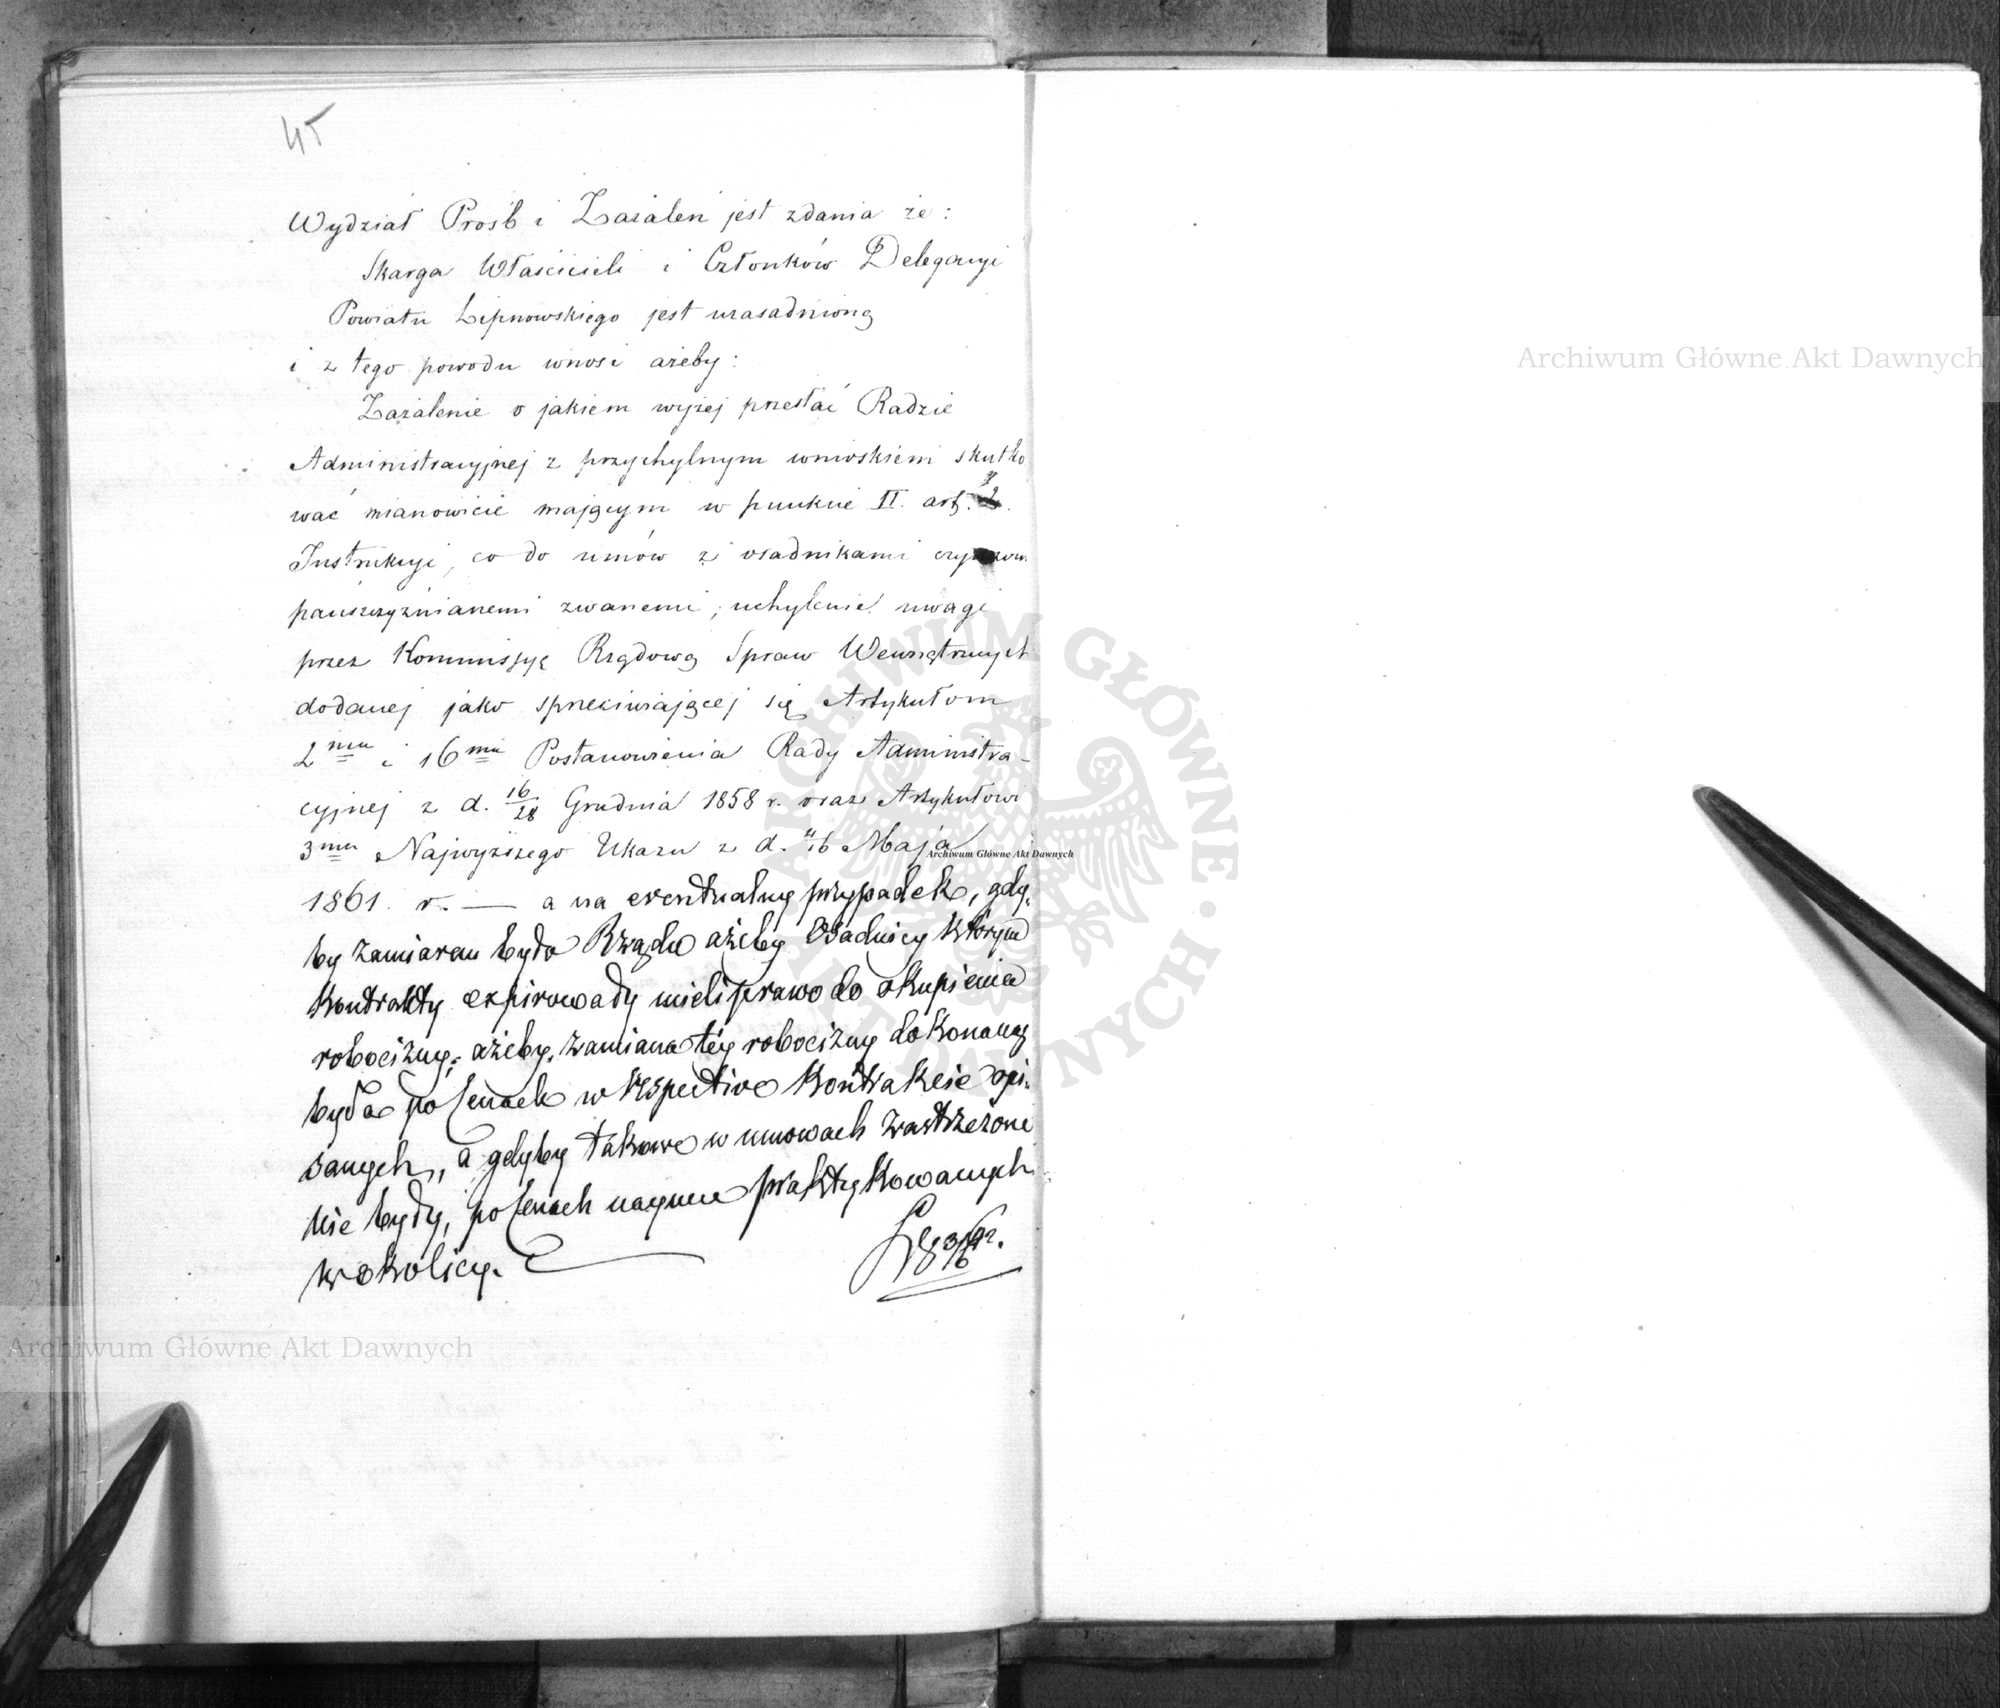 45
Wydział Prośb i Zażaleń jest zdania że:
Skarga Właścicieli i Członków Delegacyi
Powiatu Lipnowskiego jest uzasadnioną
i z tego powodu wnosi ażeby:
Zażalenie o jakiem wyżej przesłać Radzie
Administracyjnej z przychylnym wnioskiem skutko
wać mianowicie mającym w punkcie II. art.
Instrukcyi, co do umów z osadnikami
pańszczyźnianemi zwanemi, uchylenie uwagi
przez Kommissyę Rządową Spraw Wewnętrznych
dodanej jako sprzeciwiającej się Artykułom
2mu i 16mu Postanowienia Rady Administra-
cyjnej z d. 16/28 Grudnia 1858 r. oraz Artykułowi
3mu Najwyższego Ukazu z d. 4/16 Maja
1861. r. — a na ewentualny przypadek, gdy-
by zamiarem było Rządu ażeby Osadnicy którym
Kontrakty expirowały mieli prawo do okupienia
robocizny; ażeby zamiana téy robocizny dokonaną
była po cenach w respective Kontrakcie opi-
sanych, a gdyby takowe w umowach zastrzeżone
nie były, po cenach najmu praktykowanych
w okolicy.
Archiwum Główne Akt Dawnych
Archiwum Główne Akt Dawnych
Archiwum Główne Akt Dawnych
ARCHIWUM GŁÓWNE AKT DAWNYCH